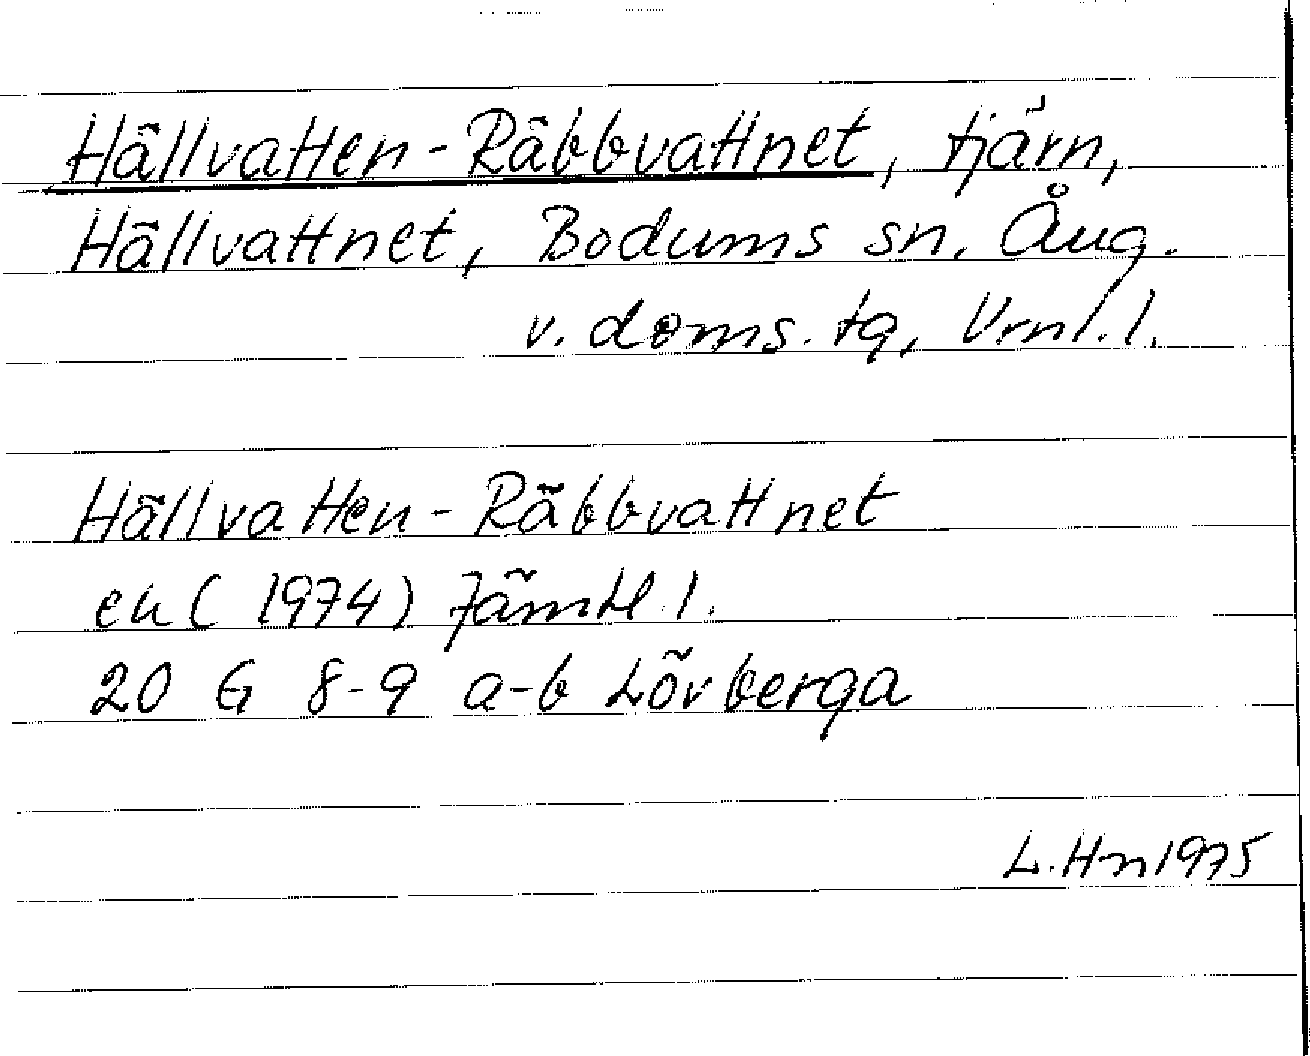 Hällvatten-Räbbvattnet, tjärn,
Hällvattnet, Bodums sn. Ång.
v. doms. tg, Vrnl. l.
Hällvatten-Räbbvattnet
ek (1974) Jämtl. l.
20 G 8-9 a-b Lövberga
L. Hn 1975